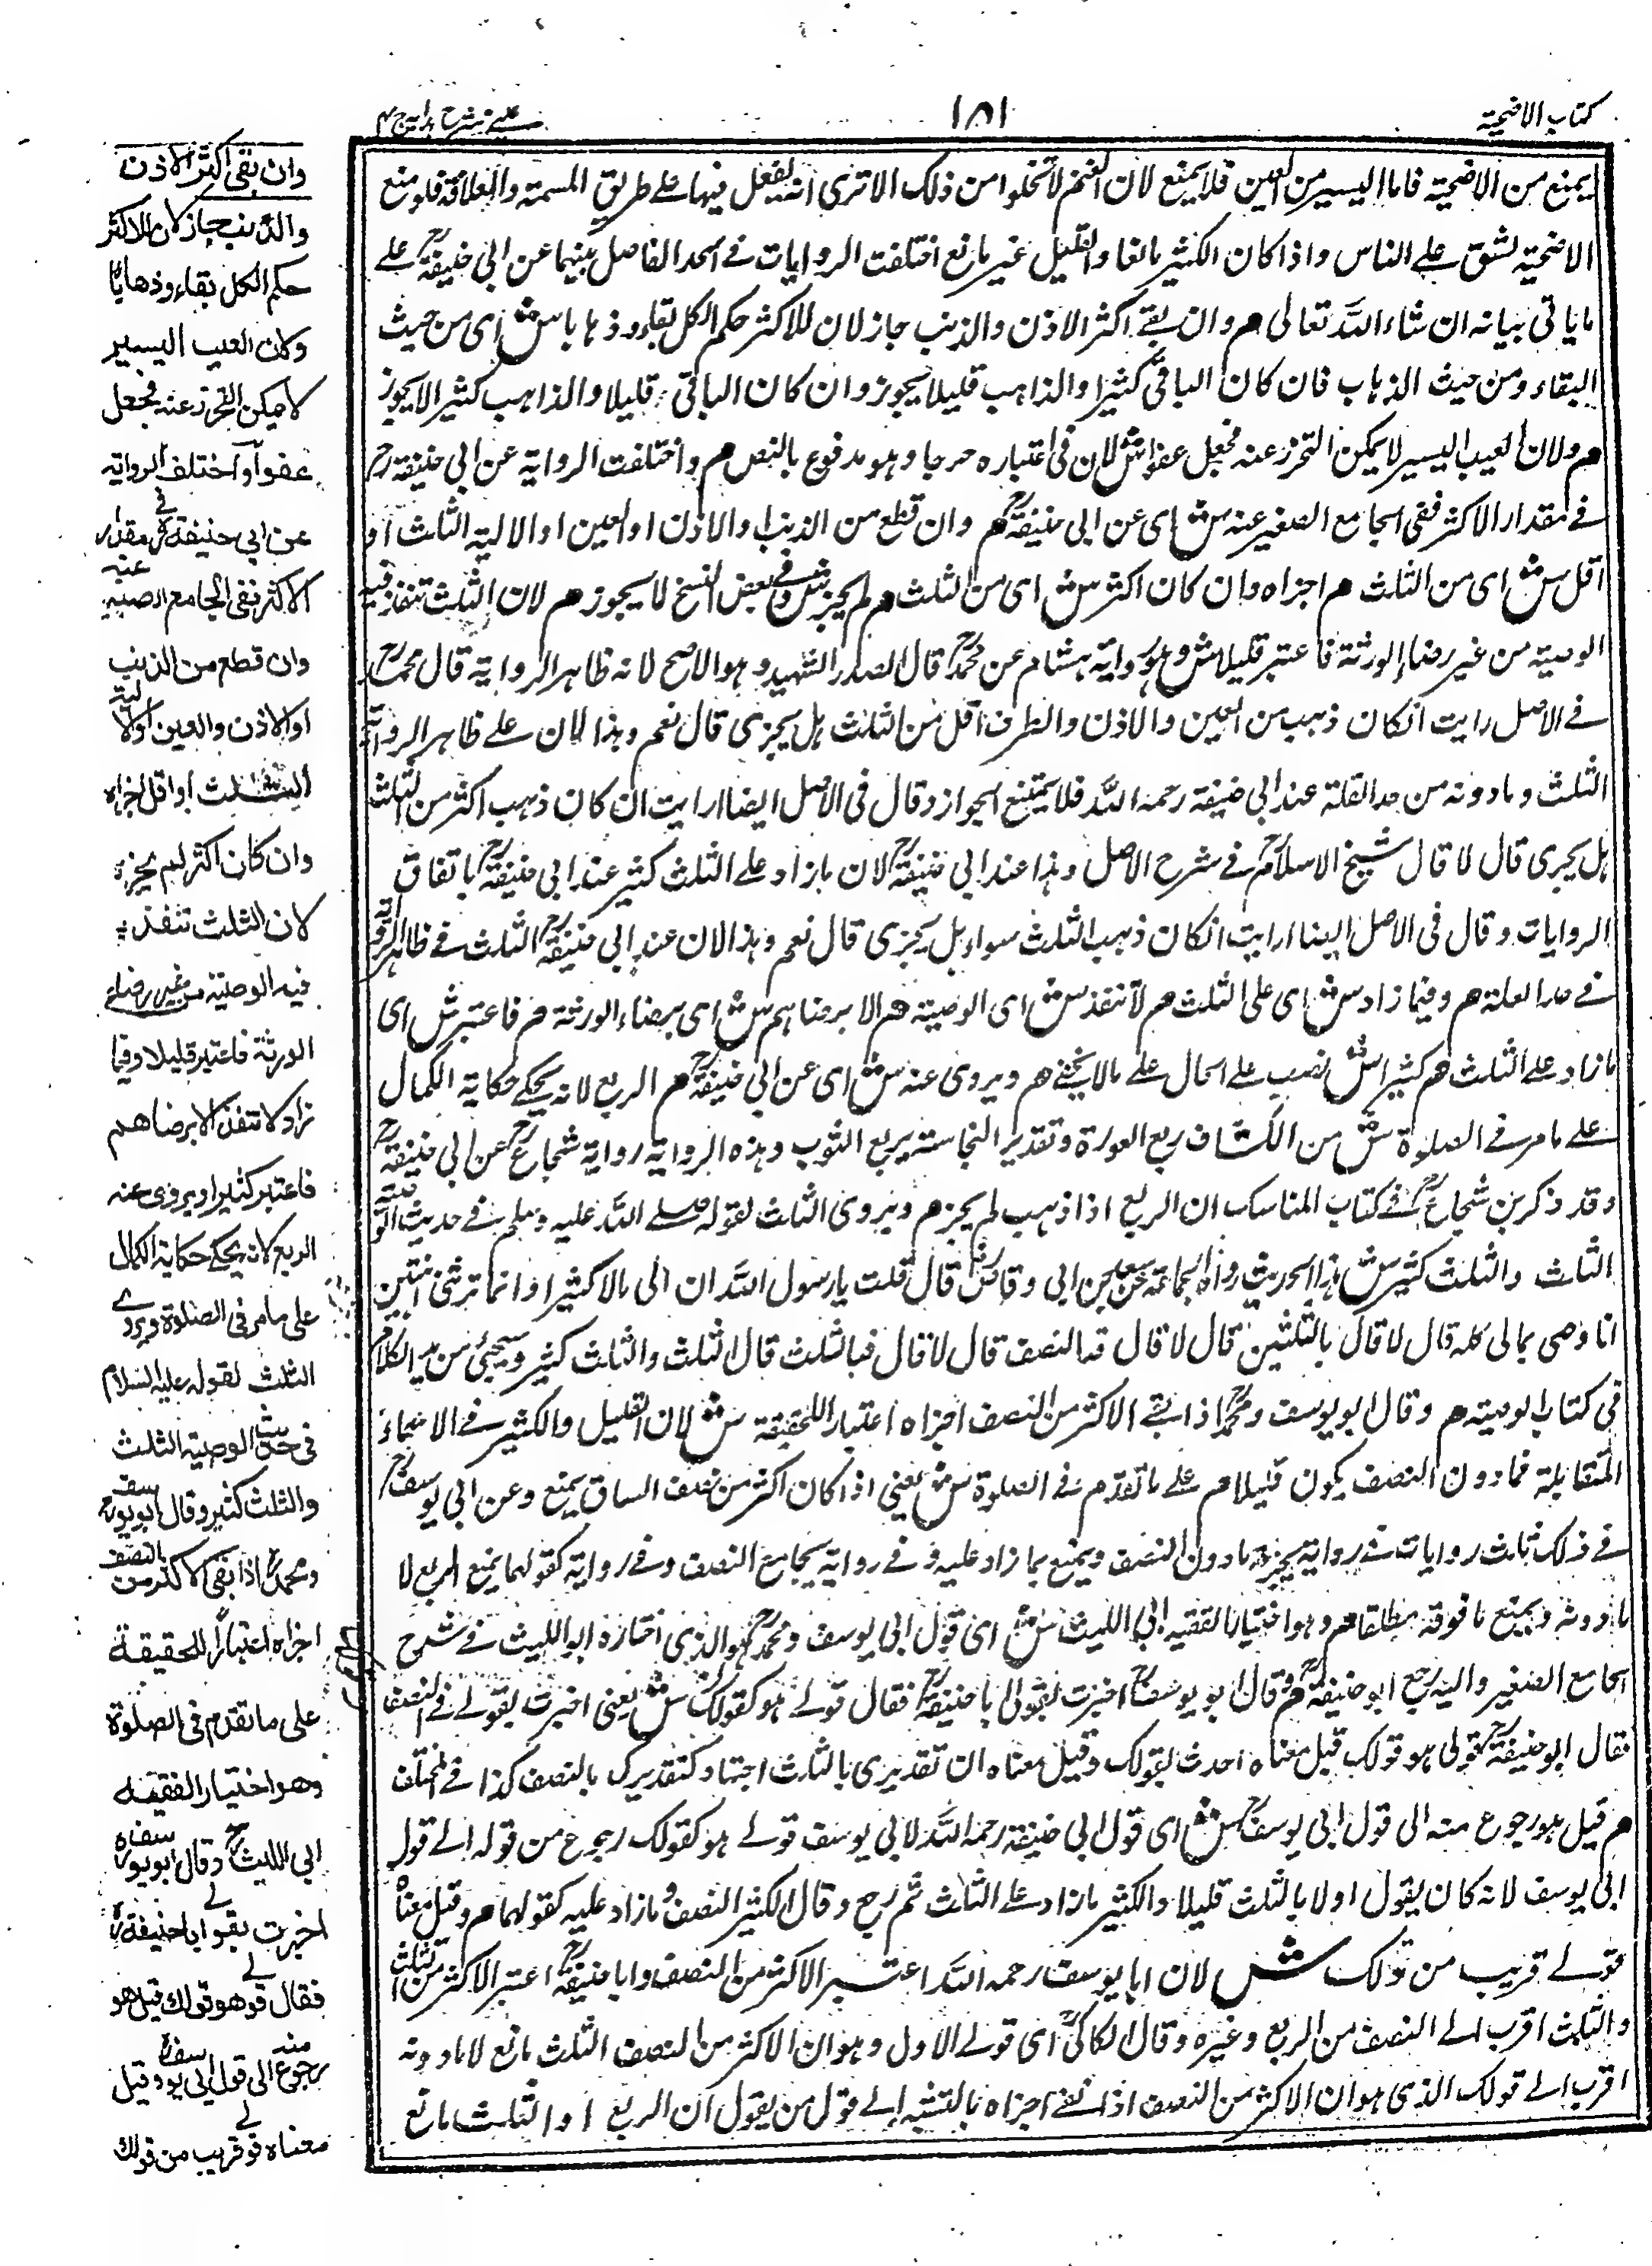 كتاب الاضحية
١٨١
عينى شرح هدايه ج ٤
يمنع من الاضحية فاما اليسير من العين فلا يمنع لان الغنم لا تخلوا من ذلك الا ترى انه يفعل فيها على طريق السمة والعلاقة فلو منع
الاضحية لشق على الناس واذا كان الكثير مانعا والقليل غير مانع اختلفت الروايات فى الحد الفاصل بينهما عن ابى حنيفة رح على
ما ياتى بيانه ان شاء الله تعالى م وان بقى اكثر الاذن والذنب جاز لان للاكثر حكم الكل بقاء وذهابا ش اى من حيث
البقاء ومن حيث الذهاب فان كان الباقى كثيرا والذاهب قليلا يجوز وان كان الباقى قليلا والذاهب كثيرا لا يجوز
م ولان العيب اليسير لا يمكن التحرز عنه فجعل عفوا ش لان فى اعتباره حرجا وهو مدفوع بالنص م واختلفت الرواية عن ابى حنيفة رح
فى مقدار الاكثر ففى الجامع الصغير عنه ش اى عن ابى حنيفة رح م وان قطع من الذنب او الاذن او العين او الالية الثلث او
اقل ش اى من الثلث م اجزاه وان كان اكثر ش اى من الثلث م لم يجز ش وفى بعض النسخ لا يجوز م لان الثلث تنفذ فيه
الوصية من غير رضاء الورثة فاعتبر قليلا ش وهو رواية هشام عن محمد رح قال الصدر الشهيد وهو الاصح لانه ظاهر الرواية قال محمد رح
فى الاصل رايت ان كان ذهب من العين والاذن والطرف اقل من الثلث هل يجزى قال نعم وهذا لان على ظاهر الرواية
الثلث وما دونه من حد القلة عند ابى حنيفة رحمه الله فلا يمتنع الجواز وقال فى الاصل ايضا ارايت ان كان ذهب اكثر من الثلث
هل يجزى قال لا قال شيخ الاسلام رح فى شرح الاصل وهذا عند ابى حنيفة رح لان ما زاد على الثلث كثير عند ابى حنيفة رح باتفاق
الروايات وقال فى الاصل ايضا ارايت ان كان ذهب الثلث سواء هل يجزى قال نعم وهذا لان عند ابى حنيفة رح الثلث فى ظاهر الرواية
فى حد القلة م وفيما زاد ش اى على الثلث م لا تنفذ ش اى الوصية م الا برضاهم ش اى برضاء الورثة م فاعتبر ش اى
ما زاد على الثلث م كثيرا ش نصب على الحال على ما لا يخفى م ويروى عنه ش اى عن ابى حنيفة رح م الربع لانه يحكى حكاية الكمال
على ما مر فى الصلوة ش من انكشاف ربع العورة وتقدير النجاسة بربع الثوب وهذه الرواية رواية شجاع رح عن ابى حنيفة رح
وقد ذكر بن شجاع رح فى كتاب المناسك ان الربع اذا ذهب لم يجز م ويروى الثلث لقوله صلى الله عليه وسلم فى حديث الوصية
الثلث والثلث كثير ش هذا الحديث رواه الجماعة عن سعد بن ابى وقاص رض قال قلت يا رسول الله ان لى مالا كثيرا وانما ترثنى ابنتى
افاوصى بمالى كله قال لا قال بالثلثين قال لا قال فبالنصف قال لا قال فبالثلث قال الثلث والثلث كثير وسيجيئ من يد الكلام
فى كتاب الوصية م وقال ابو يوسف ومحمد رح اذا بقى الاكثر من النصف اجزاه اعتبارا للحقيقة ش لان القليل والكثير فى الاسماء
المتقابلة فما دون النصف يكون قليلا م على ما تقدم فى الصلوة ش يعنى اذا كان اكثر من نصف الساق يمنع وعن ابى يوسف رح
فى ذلك ثلث روايات فى رواية يجيز ما دون النصف ويمنع بما زاد عليه وفى رواية يجامع النصف وفى رواية كقولهما يمنع الربع لا
ما دونه ويمنع ما فوقه مطلقا م وهو اختيار الفقيه ابى الليث ش اى قول ابى يوسف ومحمد رح هو الذى اختاره ابو الليث فى شرح
الجامع الصغير واليه رجع ابو حنيفة رح م وقال ابو يوسف رح اخبرت بقولى ابا حنيفة رح فقال قولى هو كقولك ش يعنى اخبرت بقولى فى النصف
فقال ابو حنيفة رح قولى هو قولك قيل معناه احدث بقولك وقيل معناه ان تقديرى بالثلث اجتهاد كتقديرك بالنصف كذا فى المختلف
م قيل هو رجوع منه الى قول ابى يوسف رح ش اى قول ابى حنيفة رحمه الله لابى يوسف قولى هو كقولك رجوع من قوله الى قول
ابى يوسف لانه كان يقول اولا بالثلث قليلا والكثير ما زاد على الثلث ثم رجع وقال الكثير النصف وما زاد عليه كقولهما م وقيل معناه
قولى قريب من قولك ش لان ابا يوسف رحمه الله اعتبر الاكثر من النصف وابا حنيفة رح اعتبر الاكثر من الثلث
والثلث اقرب الى النصف من الربع وغيره وقال الكاكى رح اى قولى الاول وهو ان الاكثر من النصف الثلث مانع لا ما دونه
اقرب الى قولك الذى هو ان الاكثر من النصف اذا بقى اجزاه بالنسبة الى قول من يقول ان الربع او الثلث مانع
وان بقى اكثر الاذن
والذنب جاز لان للاكثر
حكم الكل بقاء وذهابا
ولان العيب اليسير
لا يمكن التحرز عنه فجعل
عفوا واختلف الرواية
عن ابى حنيفة رح فى مقدار
الاكثر ففى الجامع الصغير عنه
وان قطع من الذنب
او الاذن والعين او الالية
الثلث او اقل اجزاه
وان كان اكثر لم يجزه
لان الثلث تنفذ
فيه الوصية من غير رضاء
الورثة فاعتبر قليلا وفيما
زاد لا تنفذ الا برضاهم
فاعتبر كثيرا ويروى عنه
الربع لانه يحكى حكاية الكمال
على ما مر فى الصلوة ويروى
الثلث لقوله عليه السلام
فى حديث الوصية الثلث
والثلث كثير وقال ابو يوسف
ومحمد رح اذا بقى الاكثر من النصف
اجزاه اعتبارا للحقيقة
على ما تقدم فى الصلوة
وهو اختيار الفقيه
ابى الليث رح وقال ابو يوسف رح
اخبرت بقولى ابا حنيفة رح
فقال قولى هو قولك قيل هو
رجوع منه الى قول ابى يوسف وقيل
معناه قولى قريب من قولك